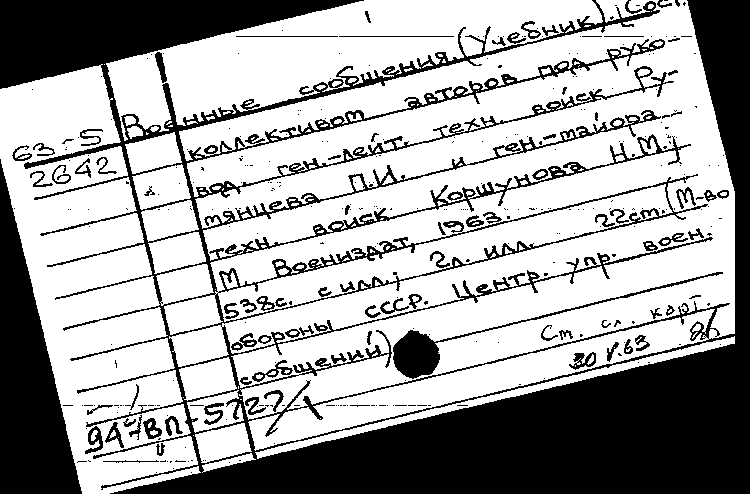 63-5 Военные сообщения. (Учебник). [Сост.
2642 коллективом авторов под руко-
вод. ген.-лейт. техн. войск Ру-
мянцева П.И. и ген.-майора
техн. войск Коршунова Н.М.]
М., Воениздат, 1963.
538с. с илл.; 2л. илл. 22см. (М-во
обороны СССР. Центр. упр. воен.
сообщений)
Ст. сл. карт.
30 V.63
94-ВП-5727/1